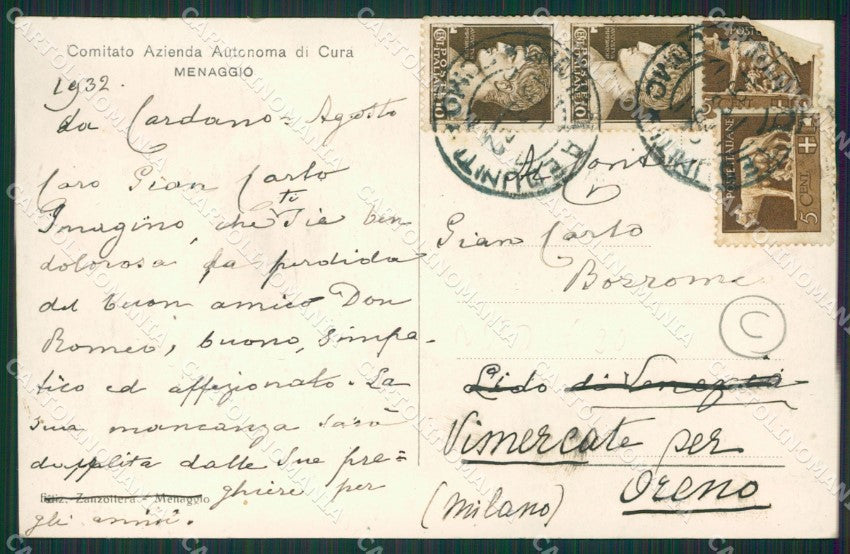 Comitato Azienda Autonoma di Cura
MENAGGIO
1932.
da Cardano = Agosto
Caro Gian Carlo
Immagino che ti sia ben
dolorosa la perdida
del buon amico Don
Romeo, buono, simpa-
tico ed affezionato. La
sua mancanza sarà
dalle sue pre=
ghiere per
gli amici.
Ediz. Zanzottera - Menaggio
POSTE ITALIANE
10
POSTE ITALIANE
10
5 CENT
POSTE ITALIANE
5 CENT
A Cont
Gian Carlo
Borrome
C
Lido di Venezia
Vimercate per
Oreno
(Milano)
CARTOLINOMANIA